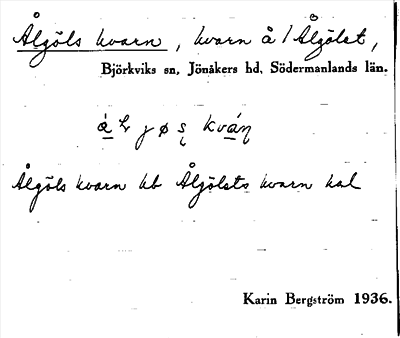 Ålgöls kvarn, kvarn å / Ålgölst,
Björkviks sn, Jönåkers hd, Södermanlands län.
Ålgöls kvarn kb Ålgölsts kvarn kal
Karin Bergström 1936.